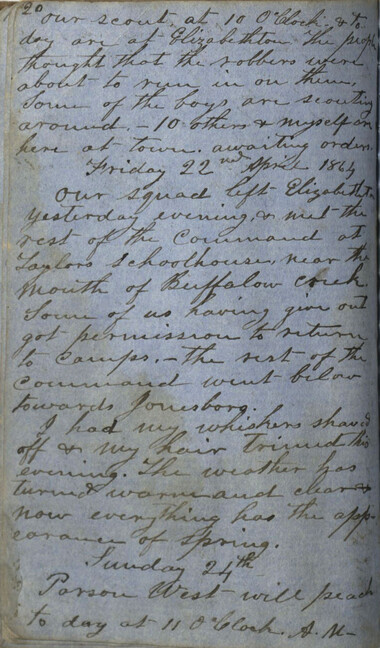 20
our scout. at 10 O'Clock. & to-
day are at Elizabethton The people
thought that the robbers were
about to run in on them.
Some of the boys, are scouting
around. — 10 others & myself are
here at town. awaiting orders.
Friday 22nd April 1864
Our squad left Elizabethton
yesterday evening, & met the
rest of the Command at
Taylors Schoolhouse, near the
Mouth of Buffalow creek.
Some of us having give out
got permission to return
to camps. — the rest of the
command went below
towards Jonesboro.
I had my whiskers shaved
off & my hair trimed this
evening. The weather has
turned warm and clear &
now everything has the app-
earance of spring.
Sunday 24th
Parson West will peach
to day at 11 O'Clock. A. M—